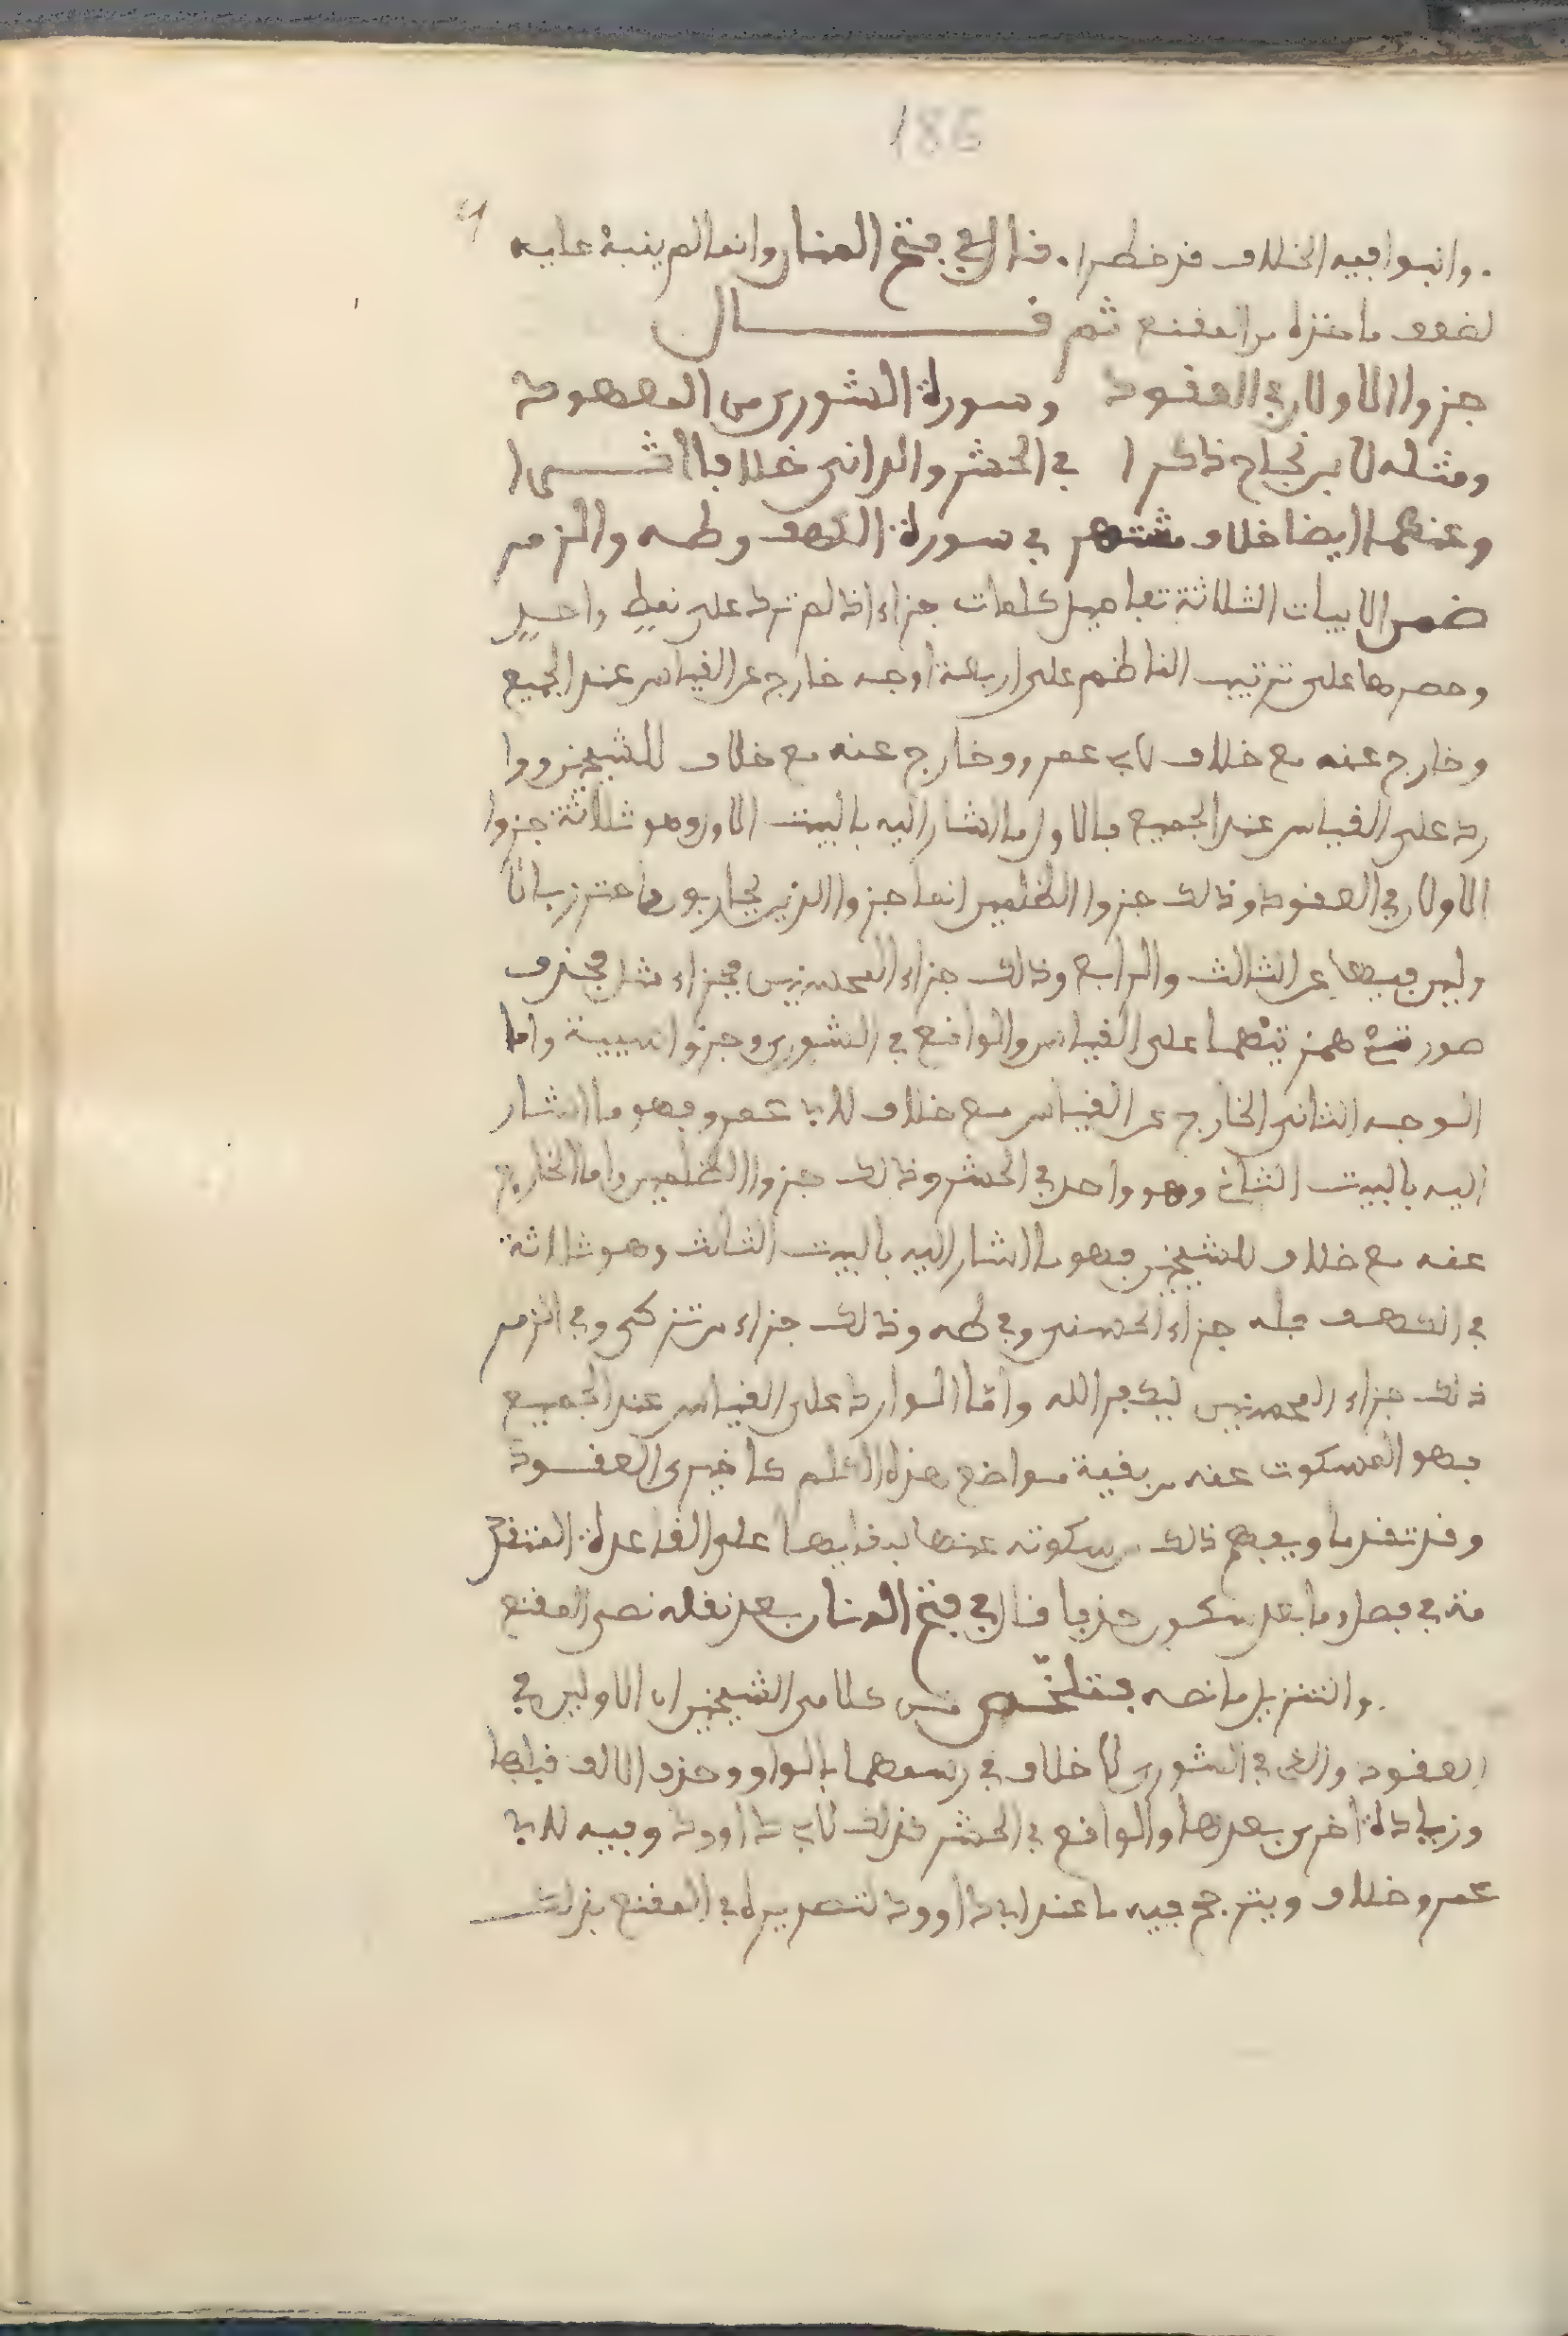 186
وانبؤا فيه الخلاف قد خطرا. قال في فتح المنار وانما لم ينبه عليه
لضعف مأخذه من المقنع ثم قال
جزؤا الاولان في العقود وسورة الشورى من المعهود
ومثله لابن نجاح ذكرا في الحشر والداني خلافا أثرا
وعنهما ايضا خلاف مشتهر في سورة الكهف وطه والزمر
ضمن الابيات الثلاثة تفاصيل كلمات جزاء اذ لم ترد على نمط واحد
وحصرها على ترتيب الناظم على اربعة اوجه خارج عن القياس عند الجميع
وخارج عنه مع خلاف لابي عمرو وخارج عنه مع خلاف للشيخين ووا
رد على القياس عند الجميع فالاول ما اشار اليه بالبيت الاول وهو ثلاثة جزؤا
الاولان في العقود وذلك جزؤا الظلمين انما جزؤا الذين يحاربون واحترز بالا
ولين فيها عن الثالث والرابع وذلك جزاء المحسنين فجزاء مثل فحذف
صورة همزتيهما على القياس والواقع في الشورى وجزؤا سيئة واما
الوجه الثاني الخارج عن القياس مع خلاف لابي عمرو فهو ما اشار
اليه بالبيت الثاني وهو واحد في الحشر وذلك جزؤا الظلمين واما الخارج
عنه مع خلاف للشيخين فهو ما اشار اليه بالبيت الثالث وهو ثلاثة
في الكهف فله جزاء الحسنى وفي طه وذلك جزاء من تزكى وفي الزمر
ذلك جزاء المحسنين ليكفر الله وأما الوارد على القياس عند الجميع
فهو المسكوت عنه من بقية مواضع هذه الكلم كاخيرى العقود
وقد تقدما ويفهم ذلك من سكوته عنها لبقايها على القاعدة المتقد
مة في فصل وما بعد سكون حذفا قال في فتح المنار بعد نقله نص المقنع
والتنزيل ما نصه فتلخّص من كلامي الشيخين ان الاولين في
العقود والذي في الشورى لا خلاف في رسمهما بالواو وحذف الالف قبلها
وزيادة اخرى بعدها والواقع في الحشر كذلك لابي داوود وفيه لابي
عمرو خلاف ويترجح فيه ما عند ابي داوود لتصديره في المقنع بذلك